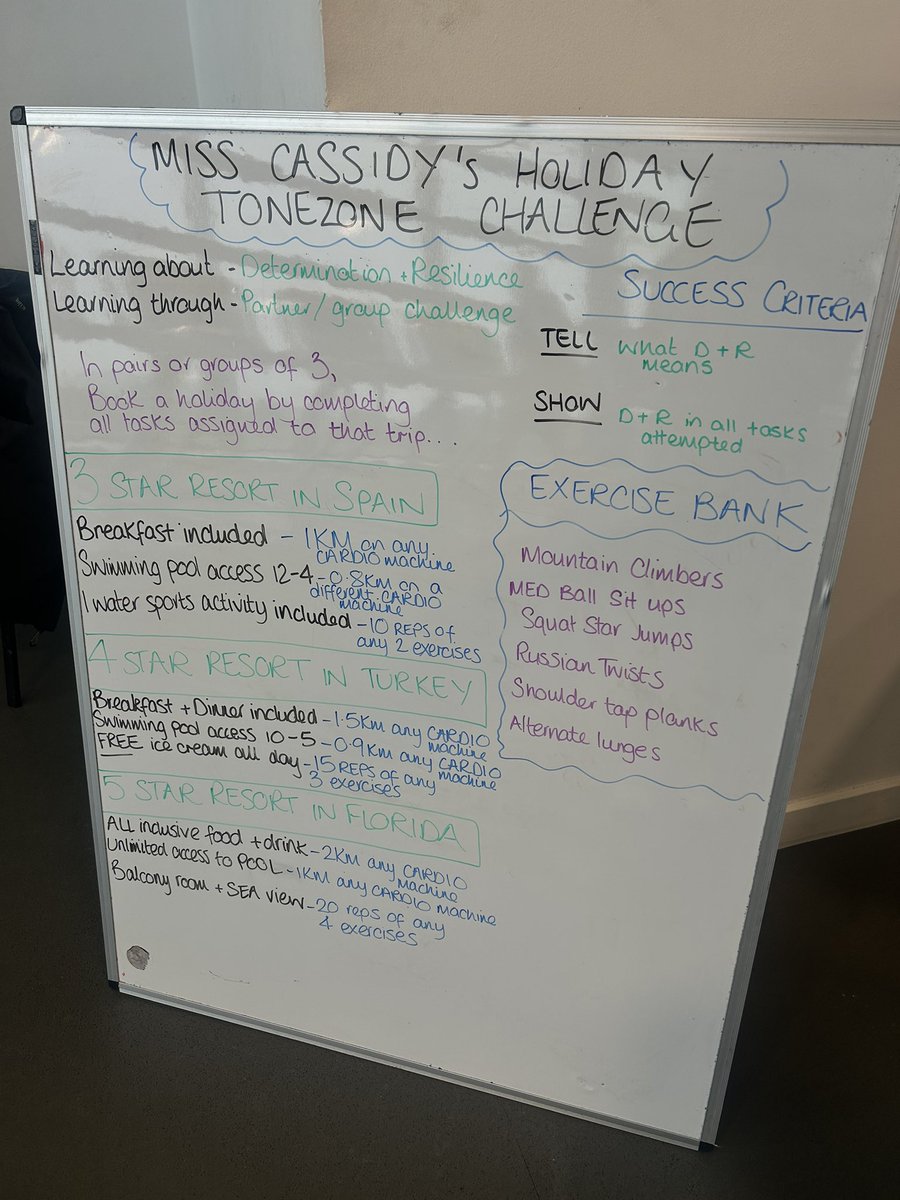 MISS CASSIDY'S HOLIDAY
TONEZONE CHALLENGE
Learning about - Determination + Resilience
Learning through - Partner/group challenge
In pairs or groups of 3,
Book a holiday by completing
all tasks assigned to that trip....
SUCCESS CRITERIA
TELL what D + R
means
SHOW D + R in all tasks
attempted
3 STAR RESORT IN SPAIN
Breakfast included - 1KM on any
CARDIO machine
Swimming pool access 12-4 - 0.8KM on a
different CARDIO
machine
1 water sports activity included - 10 REPS of
any 2 exercises
4 STAR RESORT IN TURKEY
Breakfast + Dinner included - 1.5Km any CARDIO
machine
Swimming pool access 10-5 - 0.9KM any CARDIO
machine
FREE ice cream all day - 15 REPS of any
3 exercises
5 STAR RESORT IN FLORIDA
ALL inclusive food + drink - 2KM any CARDIO
machine
Unlimited access to POOL - 1KM any CARDIO machine
Balcony room + SEA view - 20 reps of any
4 exercises
EXERCISE BANK
Mountain Climbers
MED Ball Sit ups
Squat Star Jumps
Russian Twists
Shoulder tap planks
Alternate lunges